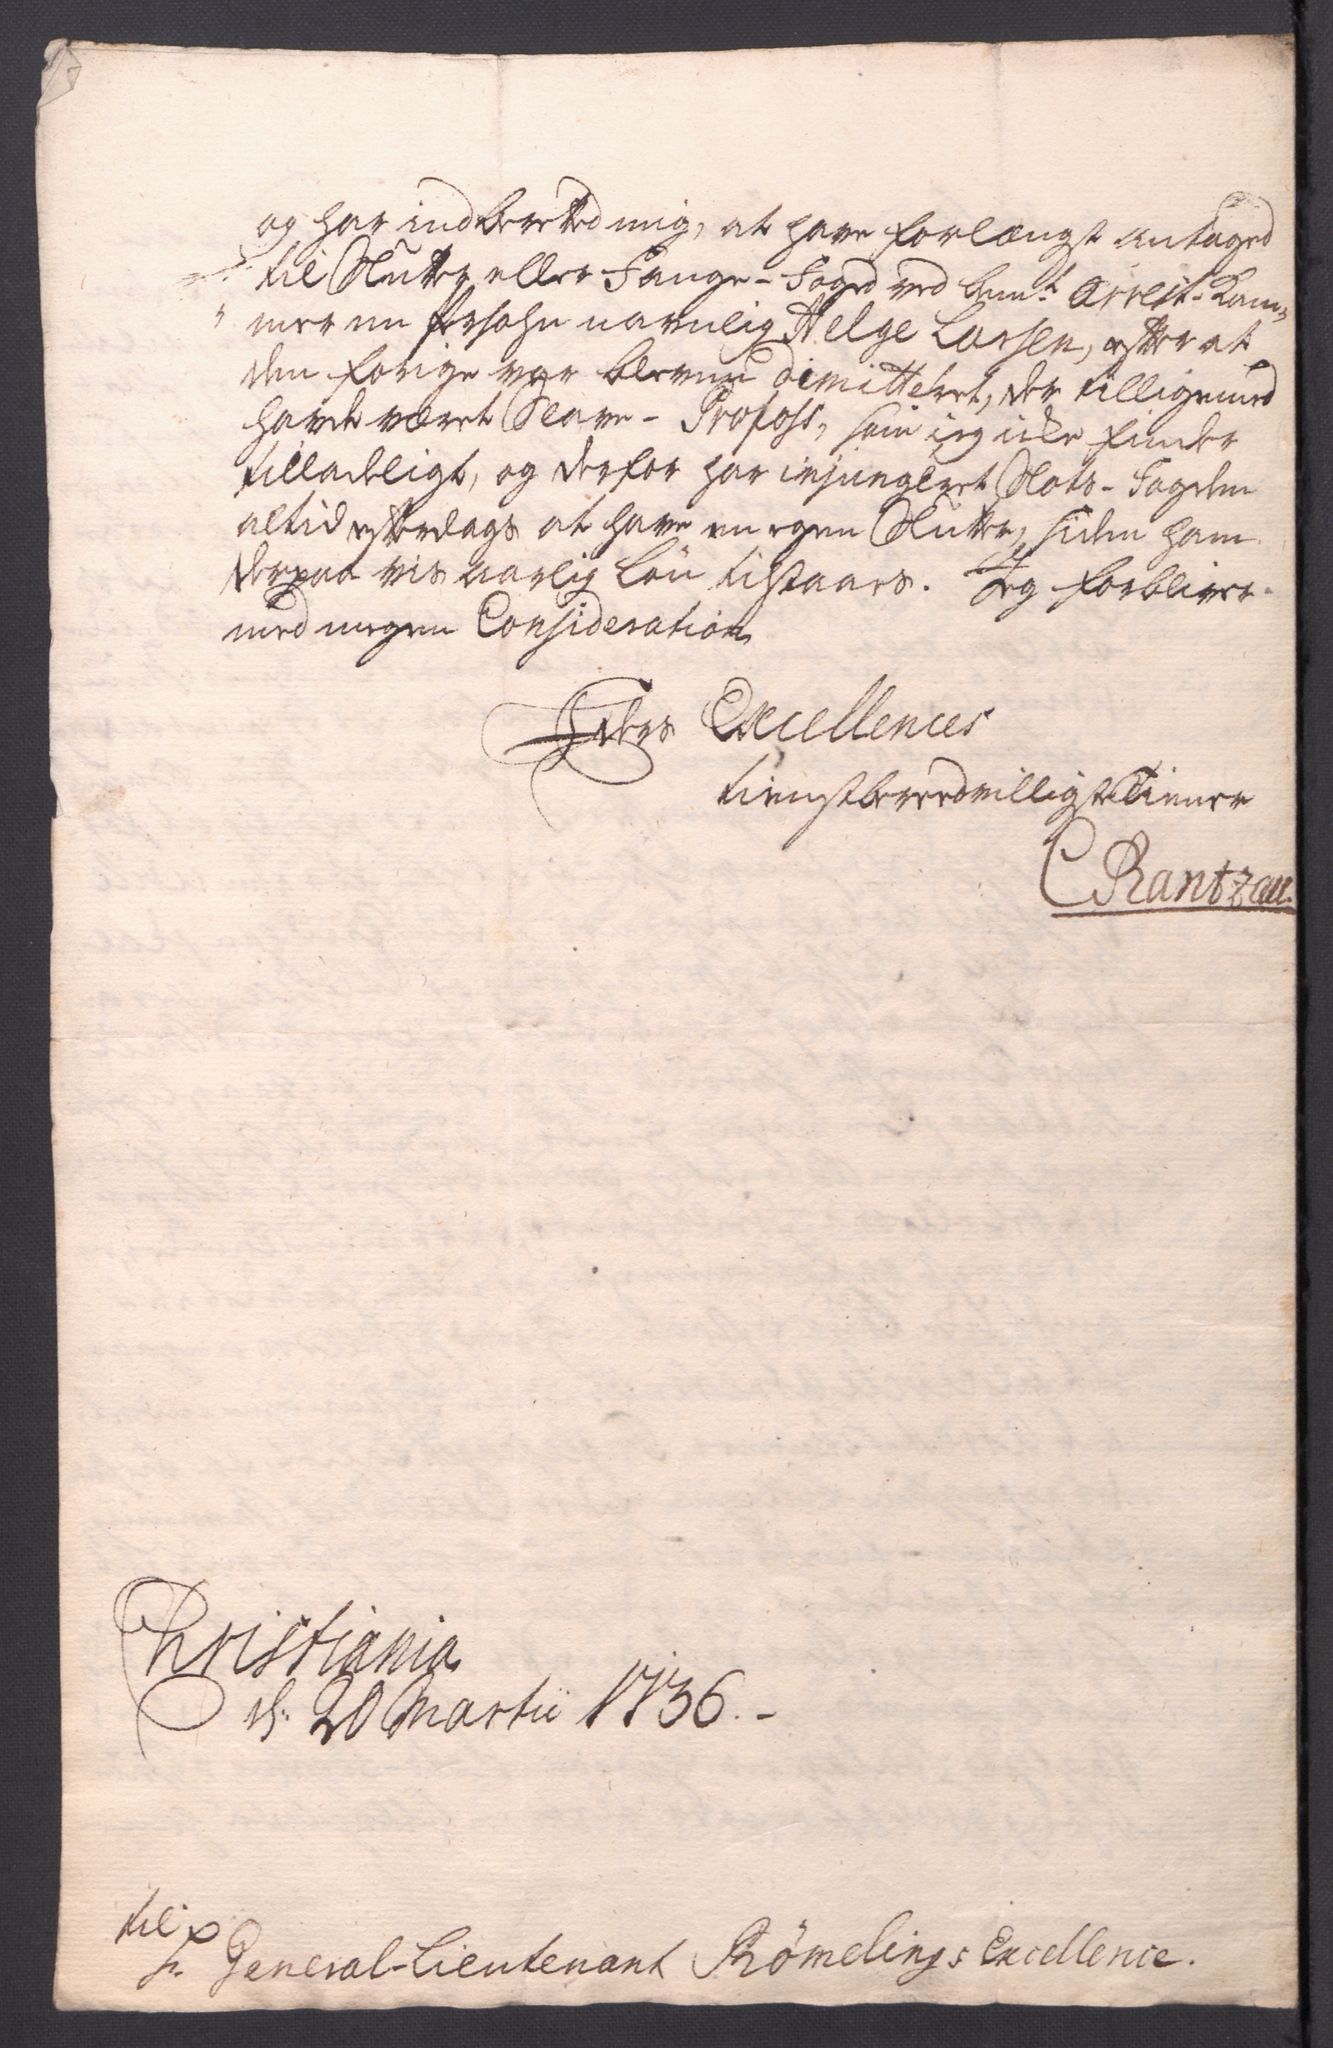 og har indberetted mig, at have forlængst antaged
til Slutter eller Fange-Foged ved bem.t Arrest-Kam-
mer en Persohn navnlig Helge Larsen, efter at
den forige var bleven dimitteret, der tilligemed
havde været Slave-Profoss, som jeg icke finder
tilladeligt, og derfor har injungeret Slots-Fogden
altid efterdags at have en egen Slutter, siden ham
derpaa vis aarlig Løn tilstaaes. Jeg forbliver
med megen Consideration
Deres Excellences
tienstbereedvilligste Tiener
C Rantzau.
Christiania
d: 20 Martii 1736.-
til
Hr. General-Lieutenant Rømelings Excellence.